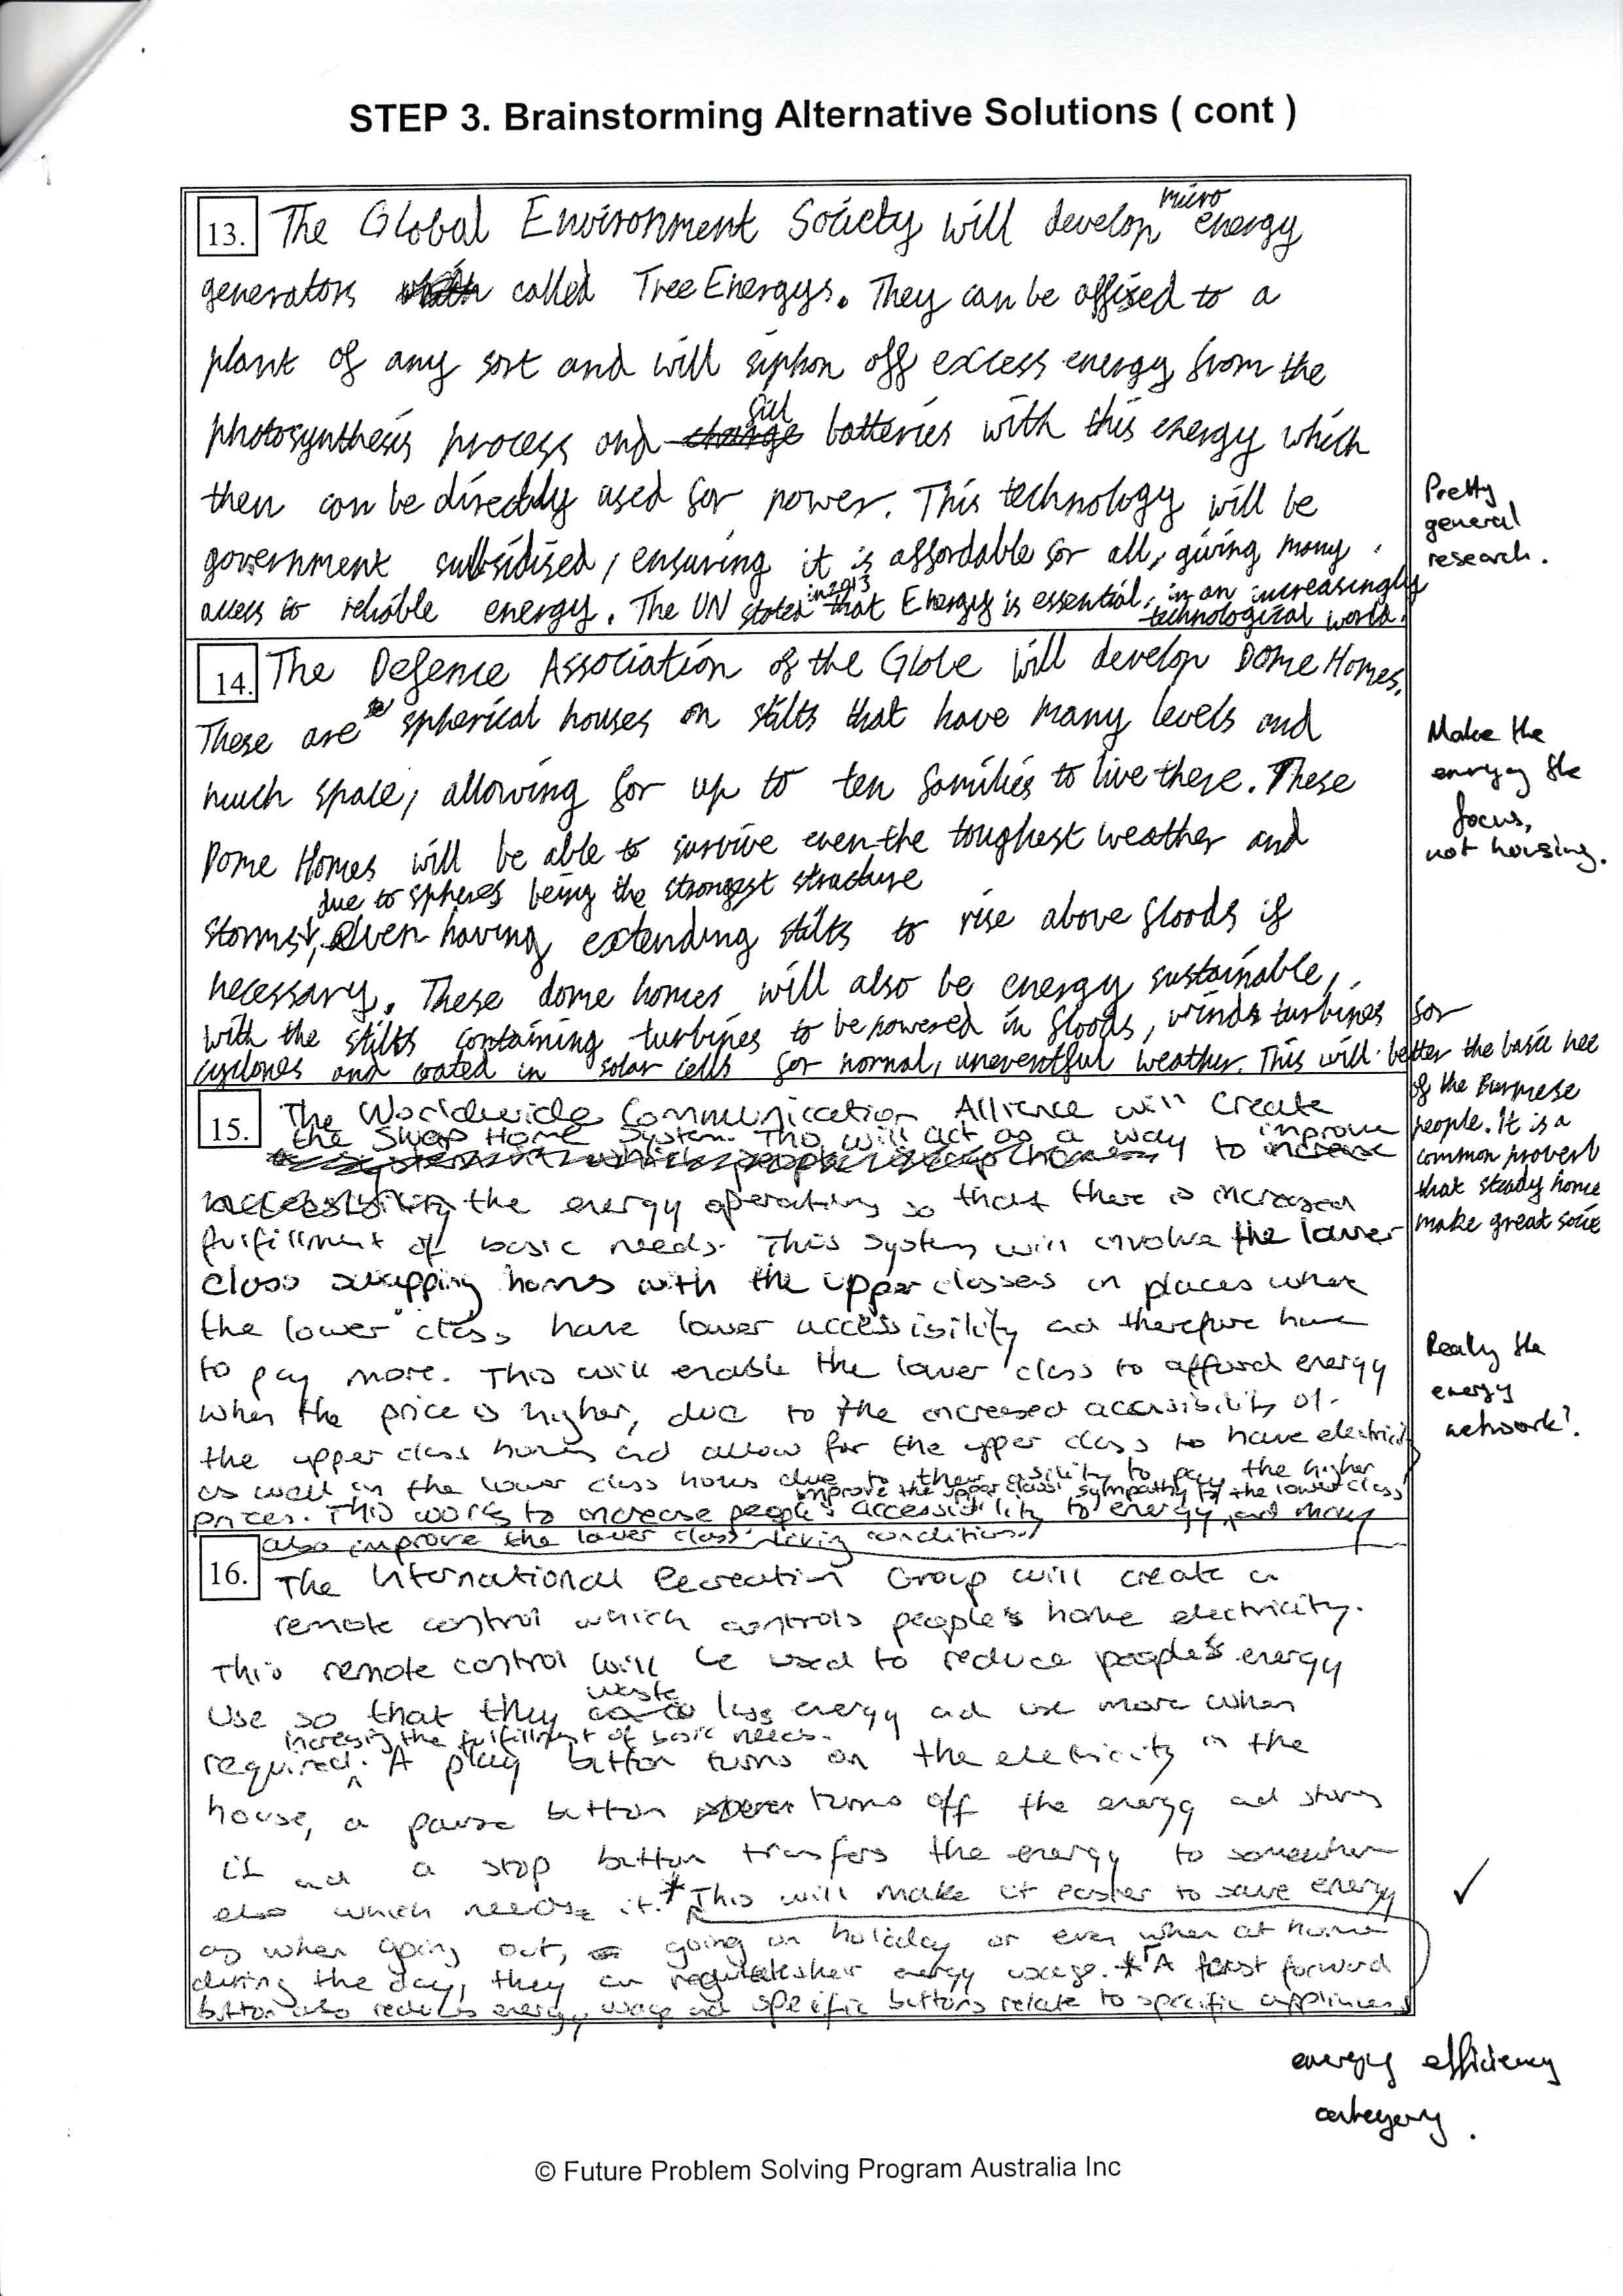 STEP 3. Brainstorming Alternative Solutions ( cont )
13. The Global Environment Society will develop micro energy
generators called TreeEnergys. They can be affixed to a
plant of any sort and will siphon off excess energy from the
photosynthesis process and fill batteries with this energy which
then can be directly used for power. This technology will be
government subsidised, ensuring it is affordable for all, giving many
access to reliable energy. The UN stated in 2013 that Energy is essential, in an increasingly
technological world.
Pretty
general
research.
14. The Defence Association of the Globe will develop Dome Homes.
These are spherical houses on stilts that have many levels and
much space, allowing for up to ten families to live there. These
Dome Homes will be able to survive even the toughest weather and
due to spheres being the strongest structure
storms, even having extending stilts to rise above floods if
necessary. These dome homes will also be energy sustainable,
with the stilts containing turbines to be powered in floods, winds turbines for
cyclones and coated in solar cells for normal, uneventful weather. This will better the basic nee
of the Burmese
people. It is a
common proverb
that steady home
make great socie
Make the
energy the
focus,
not housing.
15. The Worldwide Communication Alliance will create
the Swap Home System. This will act as a way to improve
the energy operating so that there is increased
fulfillment of basic needs. This system will involve the lower
class swapping homes with the upper classes in places where
the lower class have lower accessibility and therefore have
to pay more. This will enable the lower class to afford energy
when the price is higher, due to the increased accessibility of
the upper class homes and allow for the upper class to have electricity
as well in the lower class homes due to their ability to pay the higher
prices. This works to increase people's accessibility to energy, improve the upper class' sympathy to the lower class and may
also improve the lower class' living conditions.
Really the
energy
network?
16. The International Recreation Group will create a
remote control which controls people's home electricity.
This remote control will be used to reduce people's energy
use so that they waste less energy and use more when
required. increasing the fulfillment of basic needs. A play button turns on the electricity in the
house, a pause button turns off the energy and stores
it and a stop button transfers the energy to somewhere
else which needs it.* This will make it easier to save energy
as when going out, going on holiday or even when at home
during the day, they can regulate their energy usage. * A fast forward
button also reduces energy usage and specific buttons relate to specific appliances
✓
energy efficiency
category.
© Future Problem Solving Program Australia Inc